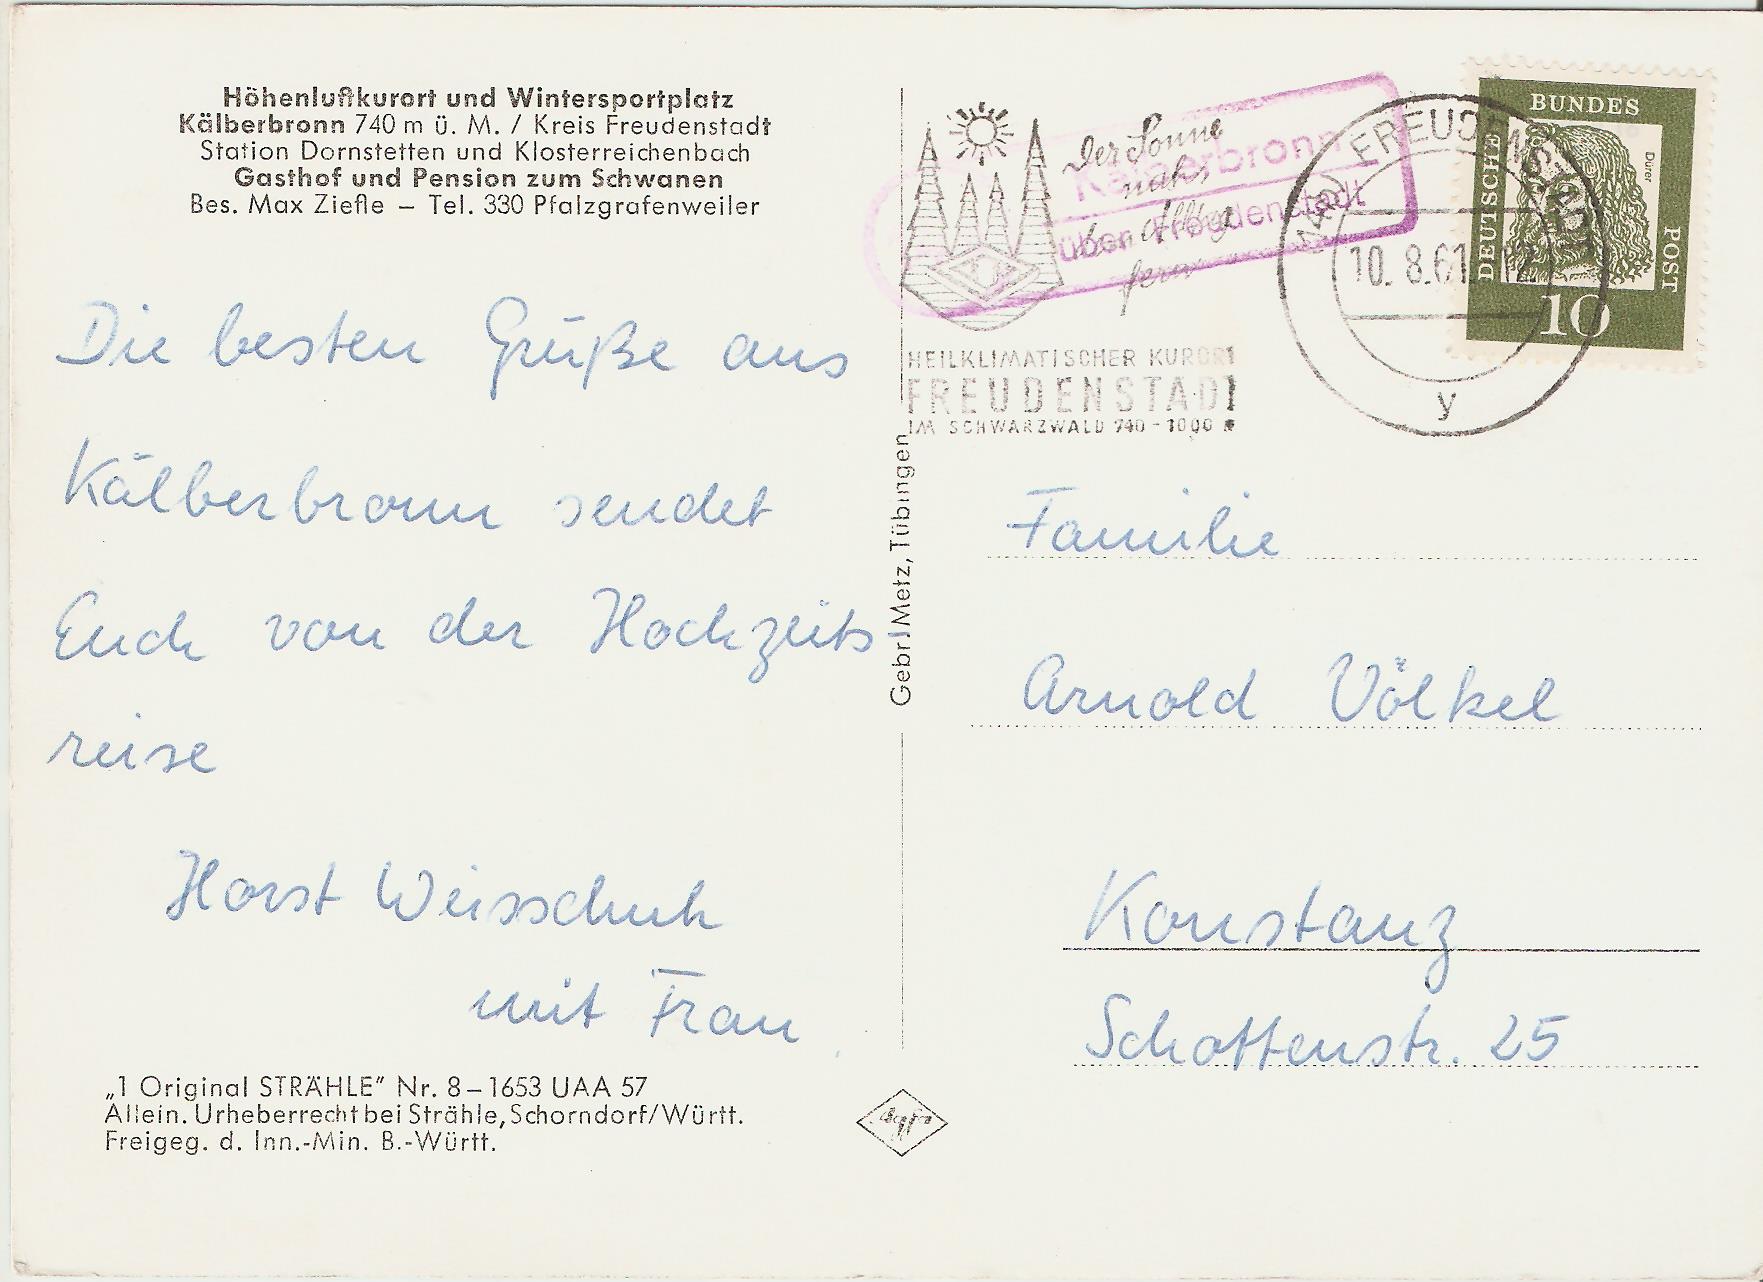 Höhenluftkurort und Wintersportplatz
Kälberbronn 740 m ü. M. / Kreis Freudenstadt
Station Dornstetten und Klosterreichenbach
Gasthof und Pension zum Schwanen
Bes. Max Ziefle – Tel. 330 Pfalzgrafenweiler
Die besten Grüße aus
Kälberbronn sendet
Euch von der Hochzeits
reise
Horst Weisschuh
mit Frau
„1 Original STRÄHLE" Nr. 8–1653 UAA 57
Allein. Urheberrecht bei Strähle, Schorndorf/Württ.
Freigeg. d. Inn.-Min. B.-Württ.
Gebr. Metz, Tübingen
Agfa
Der Sonne
nah,
dem Alltag
fern
HEILKLIMATISCHER KURORT
FREUDENSTADT
IM SCHWARZWALD 740 - 1000 M
Kälberbronn
über Freudenstadt
FREUDENSTADT
10. 8.61
y
DEUTSCHE
BUNDES
POST
Dürer
10
Familie
Arnold Völkel
Konstanz
Schottenstr. 25